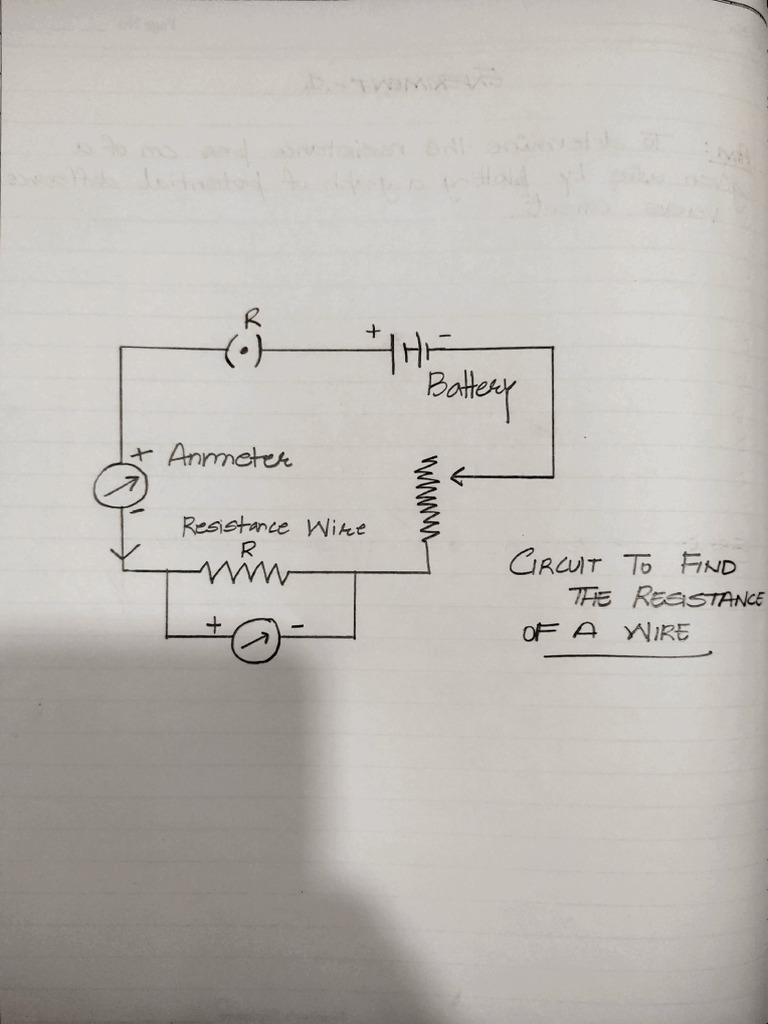 R
+ -
Battery
+ Ammeter
-
Resistance Wire
R
+ -
CIRCUIT TO FIND
THE RESISTANCE
OF A WIRE